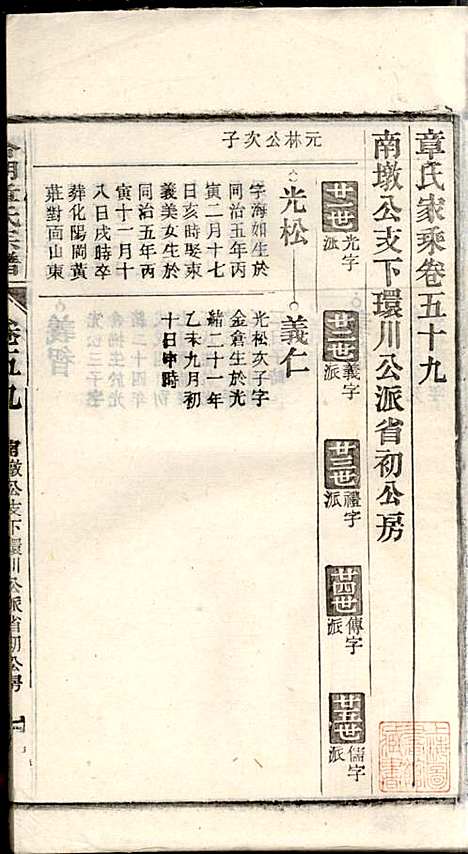 章氏家乘卷五十九
南墩公支下環川公派省初公房
廿一世 光字派
廿二世 義字派
廿三世 禮字派
廿四世 傳字派
廿五世 儒字派
元林公次子
光松
字海如生於
同治五年丙
寅二月十七
日亥時娶東
義美女生於
同治五年丙
寅十一月十
八日戌時卒
葬化陽岡黃
莊對面山東
義仁
光松次子字
金倉生於光
緒二十一年
乙未九月初
十日申時
章氏宗譜
卷五九
南墩公支下環川公派省初公房
一